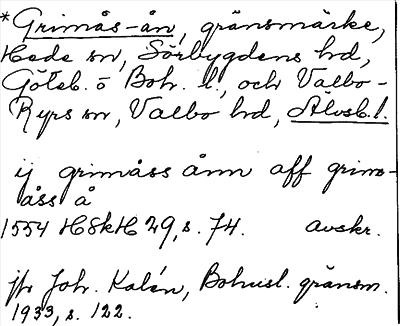 * Grimås-ån, gränsmärke,
Hede sn, Sörbygdens hd,
Göteb. o Boh. l., och Valbo-
Ryrs sn, Valbo hd, Älvsb. l.
ij grimåss ånn aff grim-
åss å
1554 HSkH 29, s. 74. avskr.
jfr Joh. Kalén, Bohusl. gränsm.
1933, s. 122.